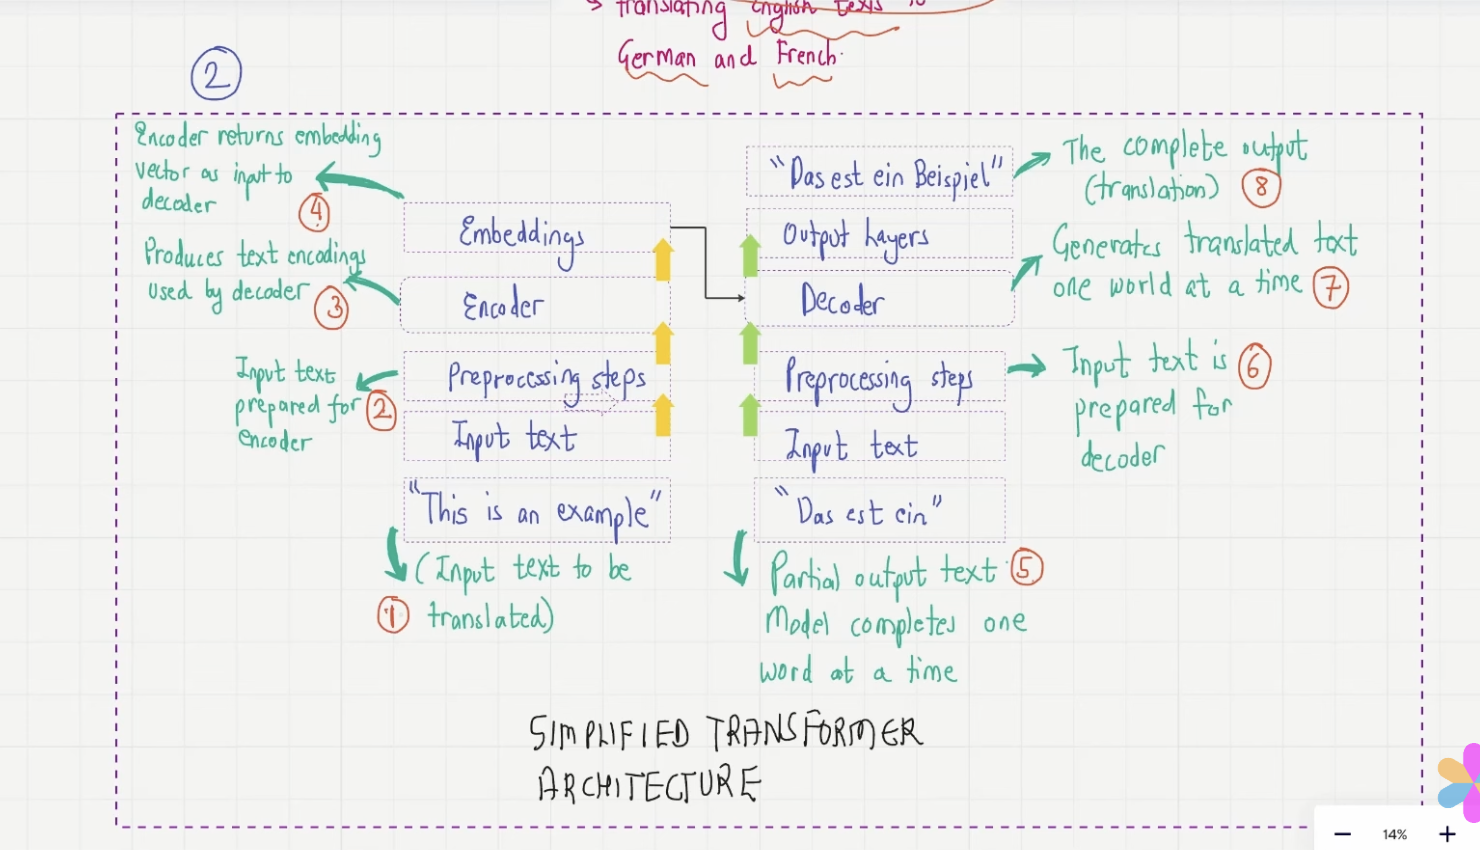 translating English texts to
German and French.
2
Encoder returns embedding
vector as input to
decoder
4
Produces text encodings
used by decoder
3
Input text
prepared for
encoder
2
Embeddings
Encoder
Preprocessing steps
Input text
"This is an example"
(Input text to be
translated)
1
"Das est ein Beispiel"
Output Layers
Decoder
Preprocessing steps
Input text
"Das est ein"
Partial output text
5
Model completes one
word at a time
The complete output
(translation)
8
Generates translated text
one world at a time
7
Input text is
6
prepared for
decoder
SIMPLIFIED TRANSFORMER
ARCHITECTURE
− 14% +